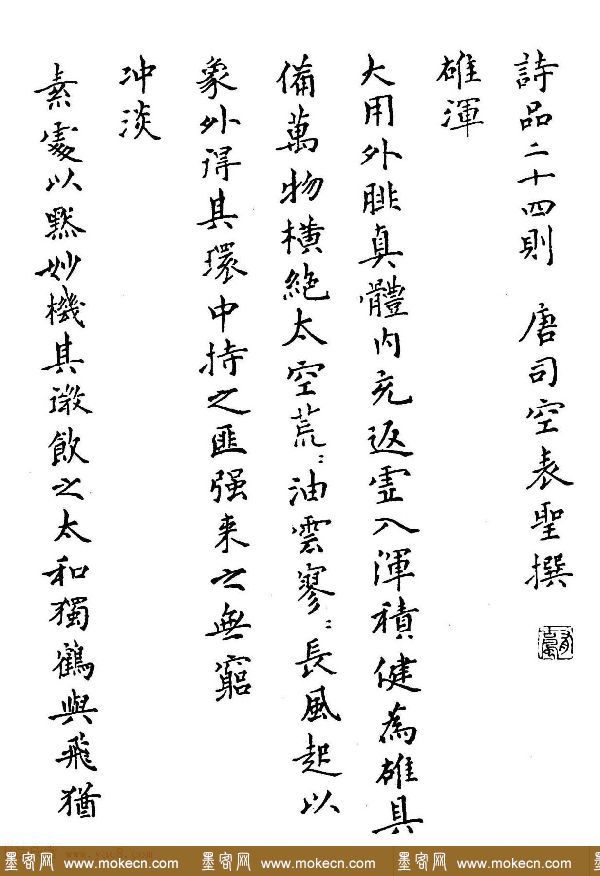 詩品二十四則 唐司空表聖撰
雄渾
大用外腓真體内充返虛入渾積健為雄具
備萬物橫絶太空荒〻油雲寥〻長風超以
象外得其環中持之匪强来之無窮
冲淡
素處以默妙機其微飲之太和獨鶴與飛猶
墨客网 www.mokecn.com 墨客网 www.mokecn.com 墨客网 www.mokecn.com